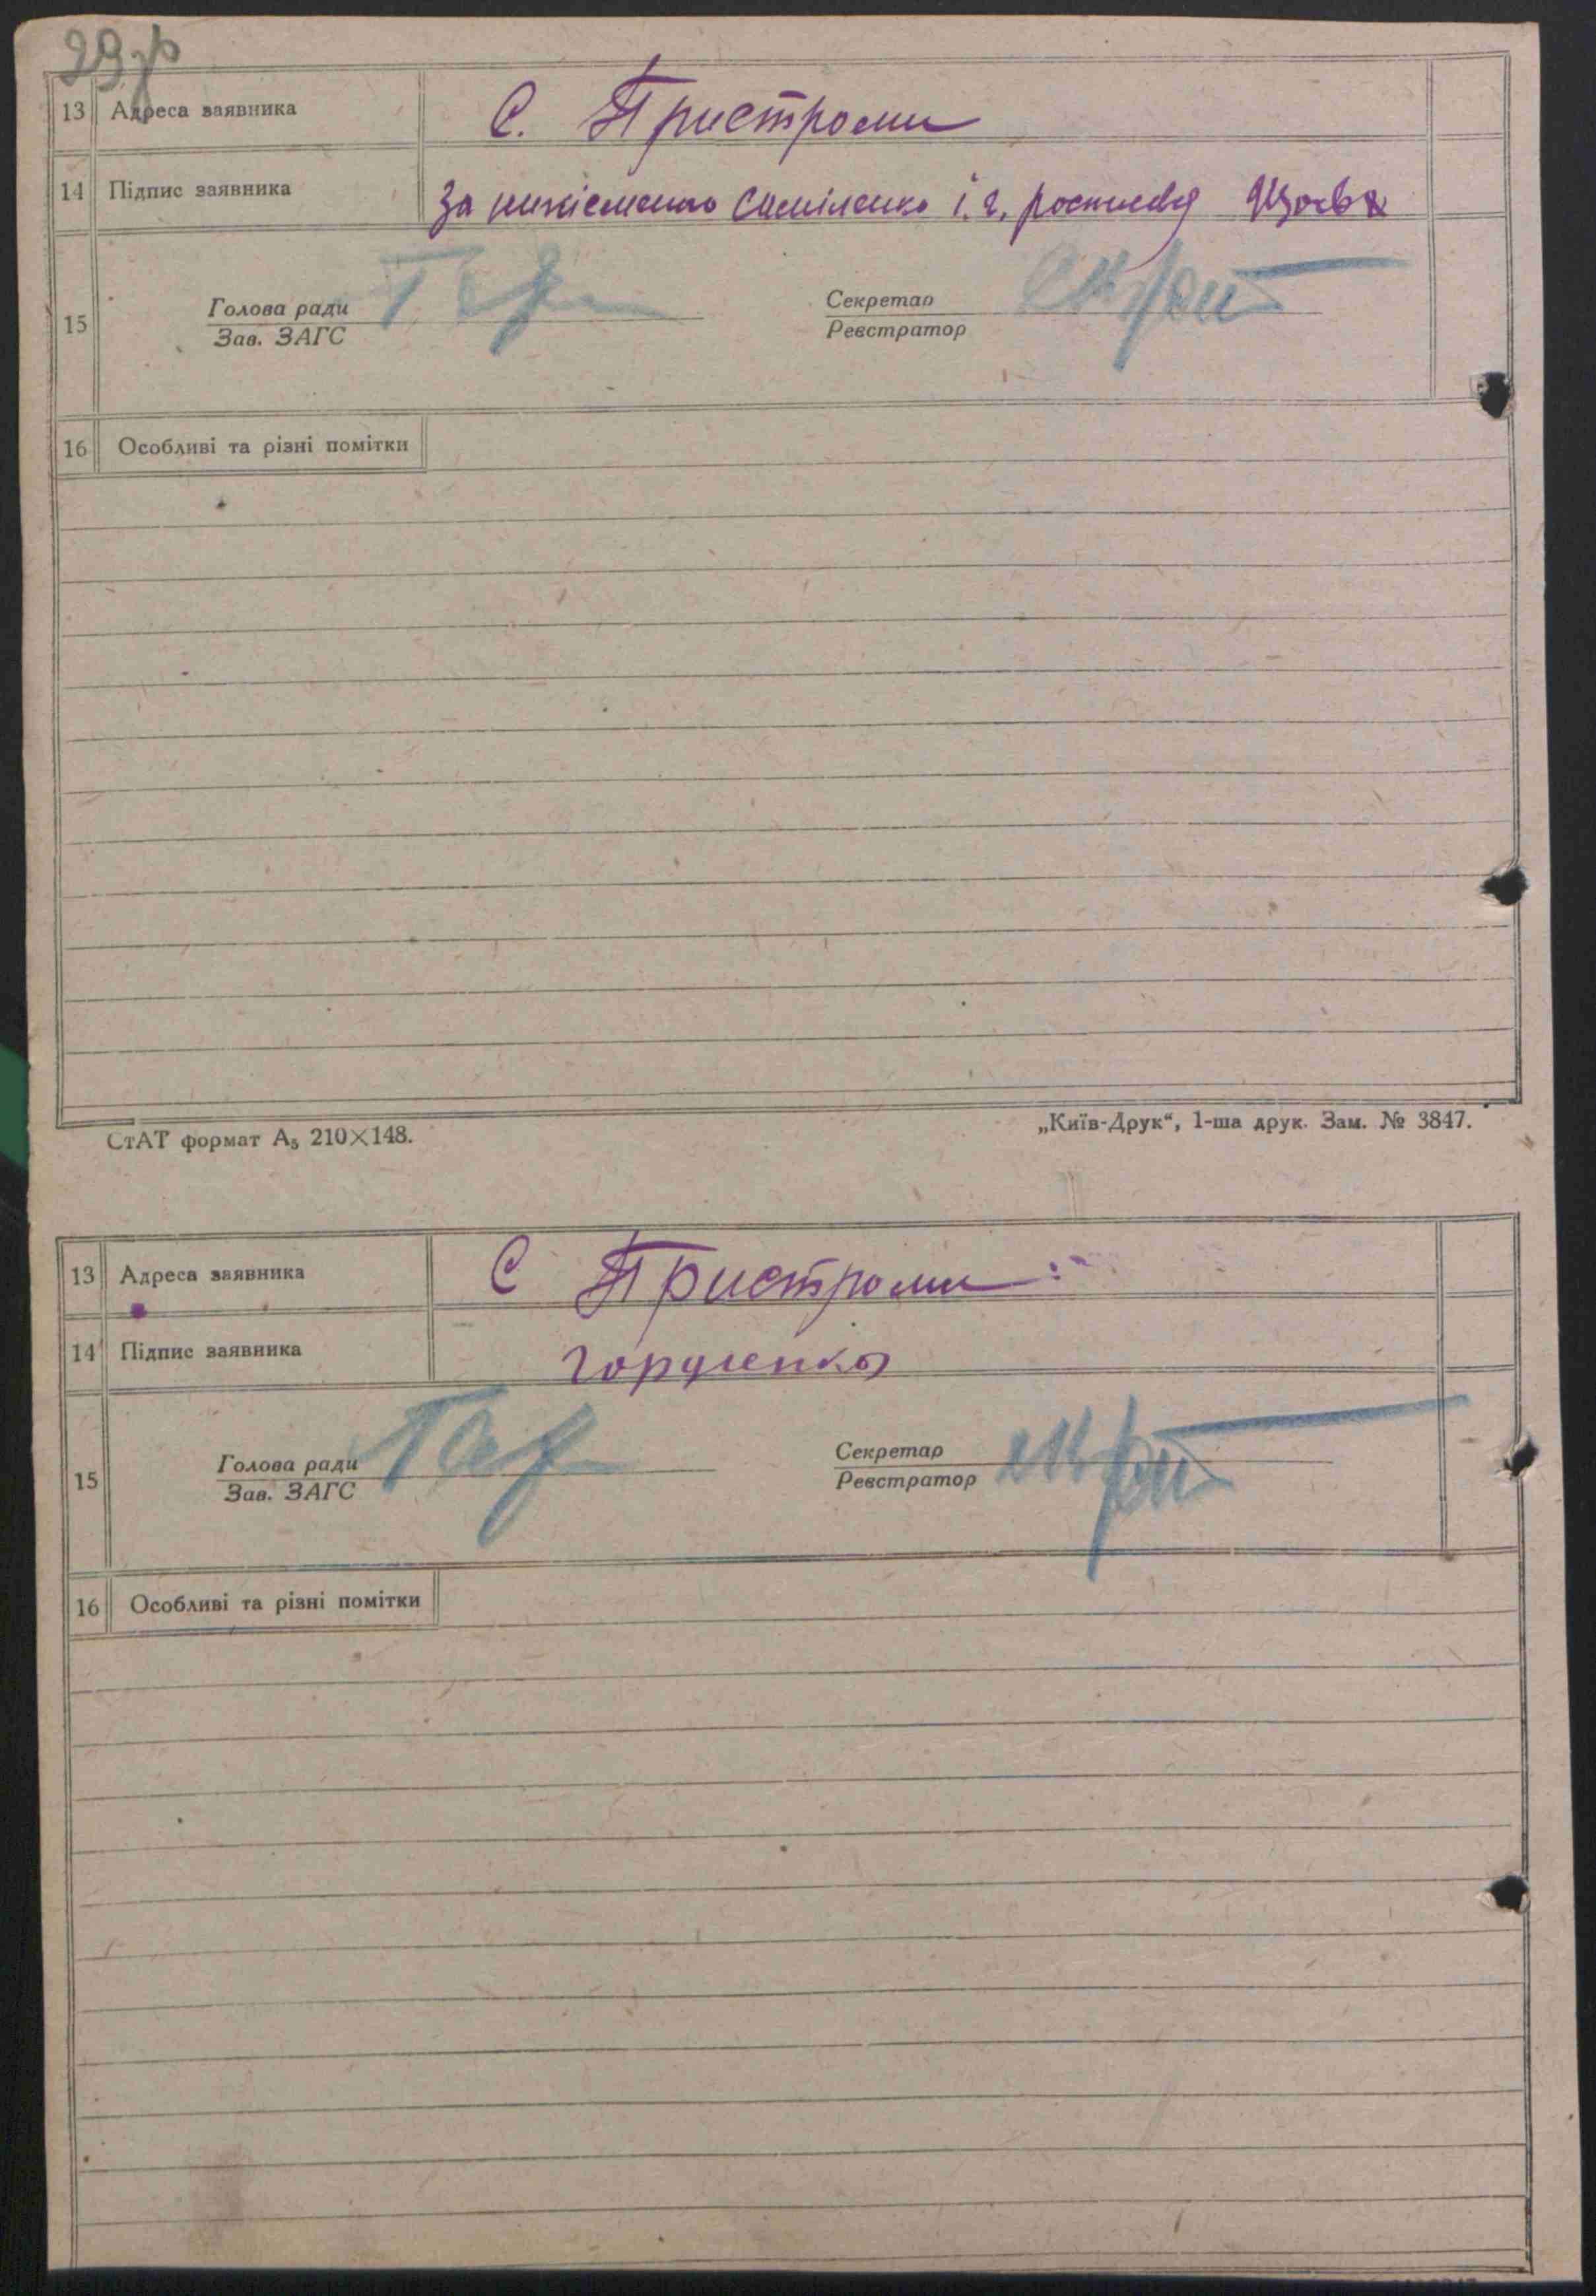 29зр
13 Адреса заявника С. Пристроми
14 Підпис заявника За і. г.
15 Голова ради Секретар
Зав. ЗАГС Реєстратор
16 Особливі та різні помітки
СтАТ формат А₅ 210×148. „Київ-Друк“, 1-ша друк. Зам. № 3847.
13 Адреса заявника С Пристроми
14 Підпис заявника Гордієнко
15 Голова ради Секретар
Зав. ЗАГС Реєстратор
16 Особливі та різні помітки